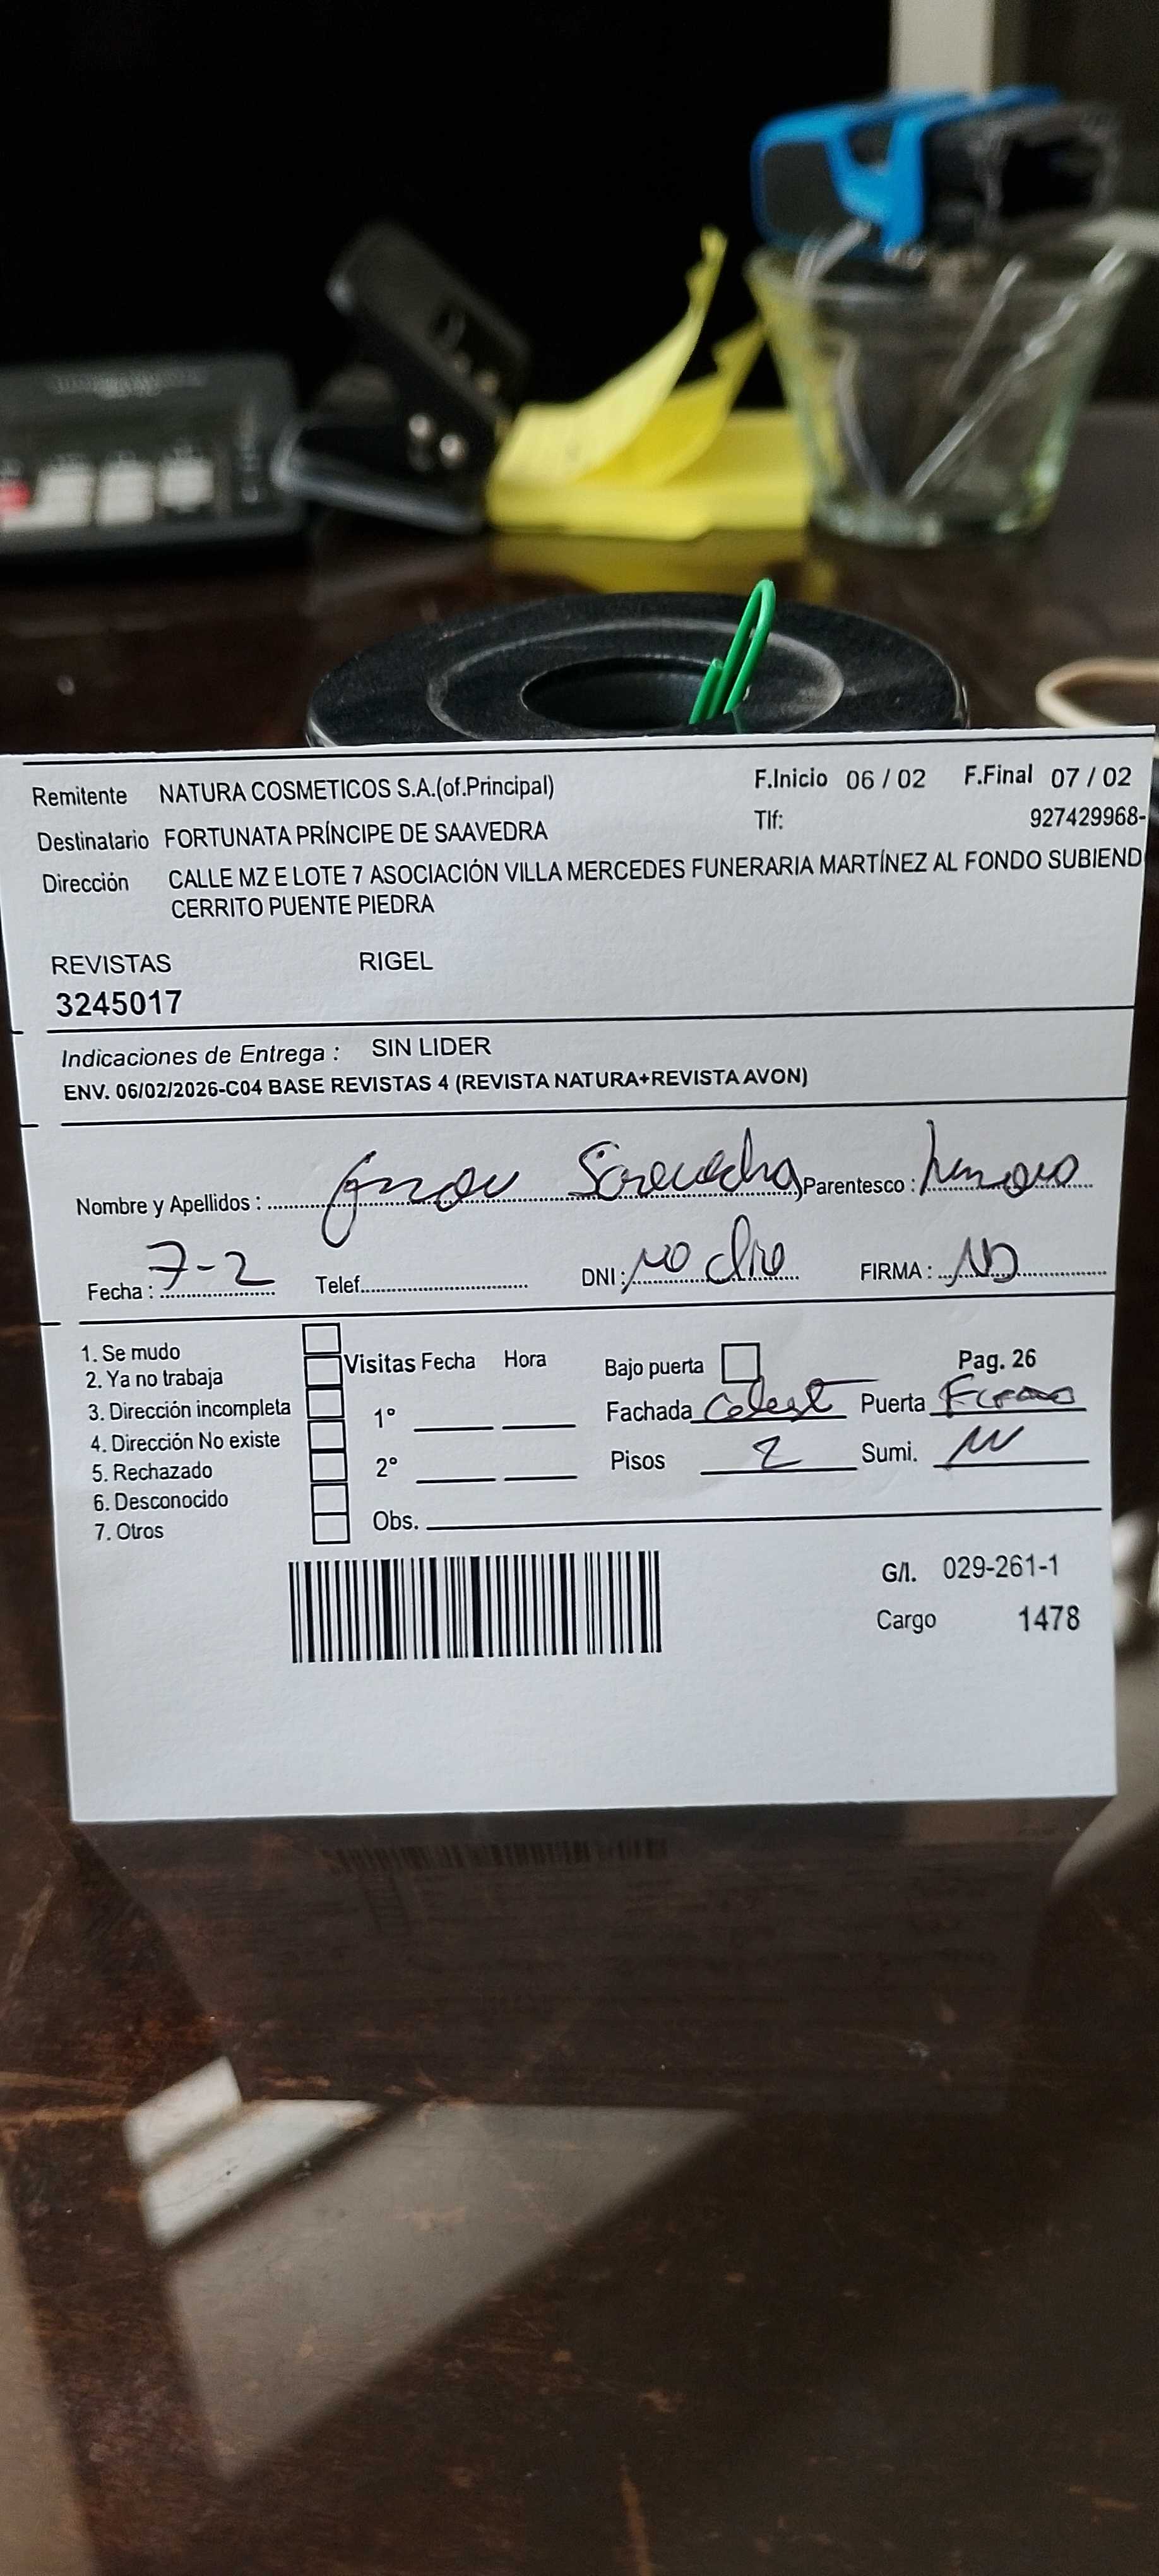 Remitente NATURA COSMETICOS S.A.(of.Principal) F.Inicio 06 / 02 F.Final 07 / 02
Destinatario FORTUNATA PRÍNCIPE DE SAAVEDRA Tlf: 927429968-
Dirección CALLE MZ E LOTE 7 ASOCIACIÓN VILLA MERCEDES FUNERARIA MARTÍNEZ AL FONDO SUBIEND
CERRITO PUENTE PIEDRA
REVISTAS RIGEL
3245017
Indicaciones de Entrega : SIN LIDER
ENV. 06/02/2026-C04 BASE REVISTAS 4 (REVISTA NATURA+REVISTA AVON)
Nombre y Apellidos : Saavedra Parentesco :
Fecha : 7-2 Telef. DNI : no dio FIRMA :
1. Se mudo
2. Ya no trabaja Visitas Fecha Hora Bajo puerta Pag. 26
3. Dirección incompleta 1° Fachada Celest Puerta
4. Dirección No existe
5. Rechazado 2° Pisos 2 Sumi.
6. Desconocido
7. Otros Obs.
G/I. 029-261-1
Cargo 1478